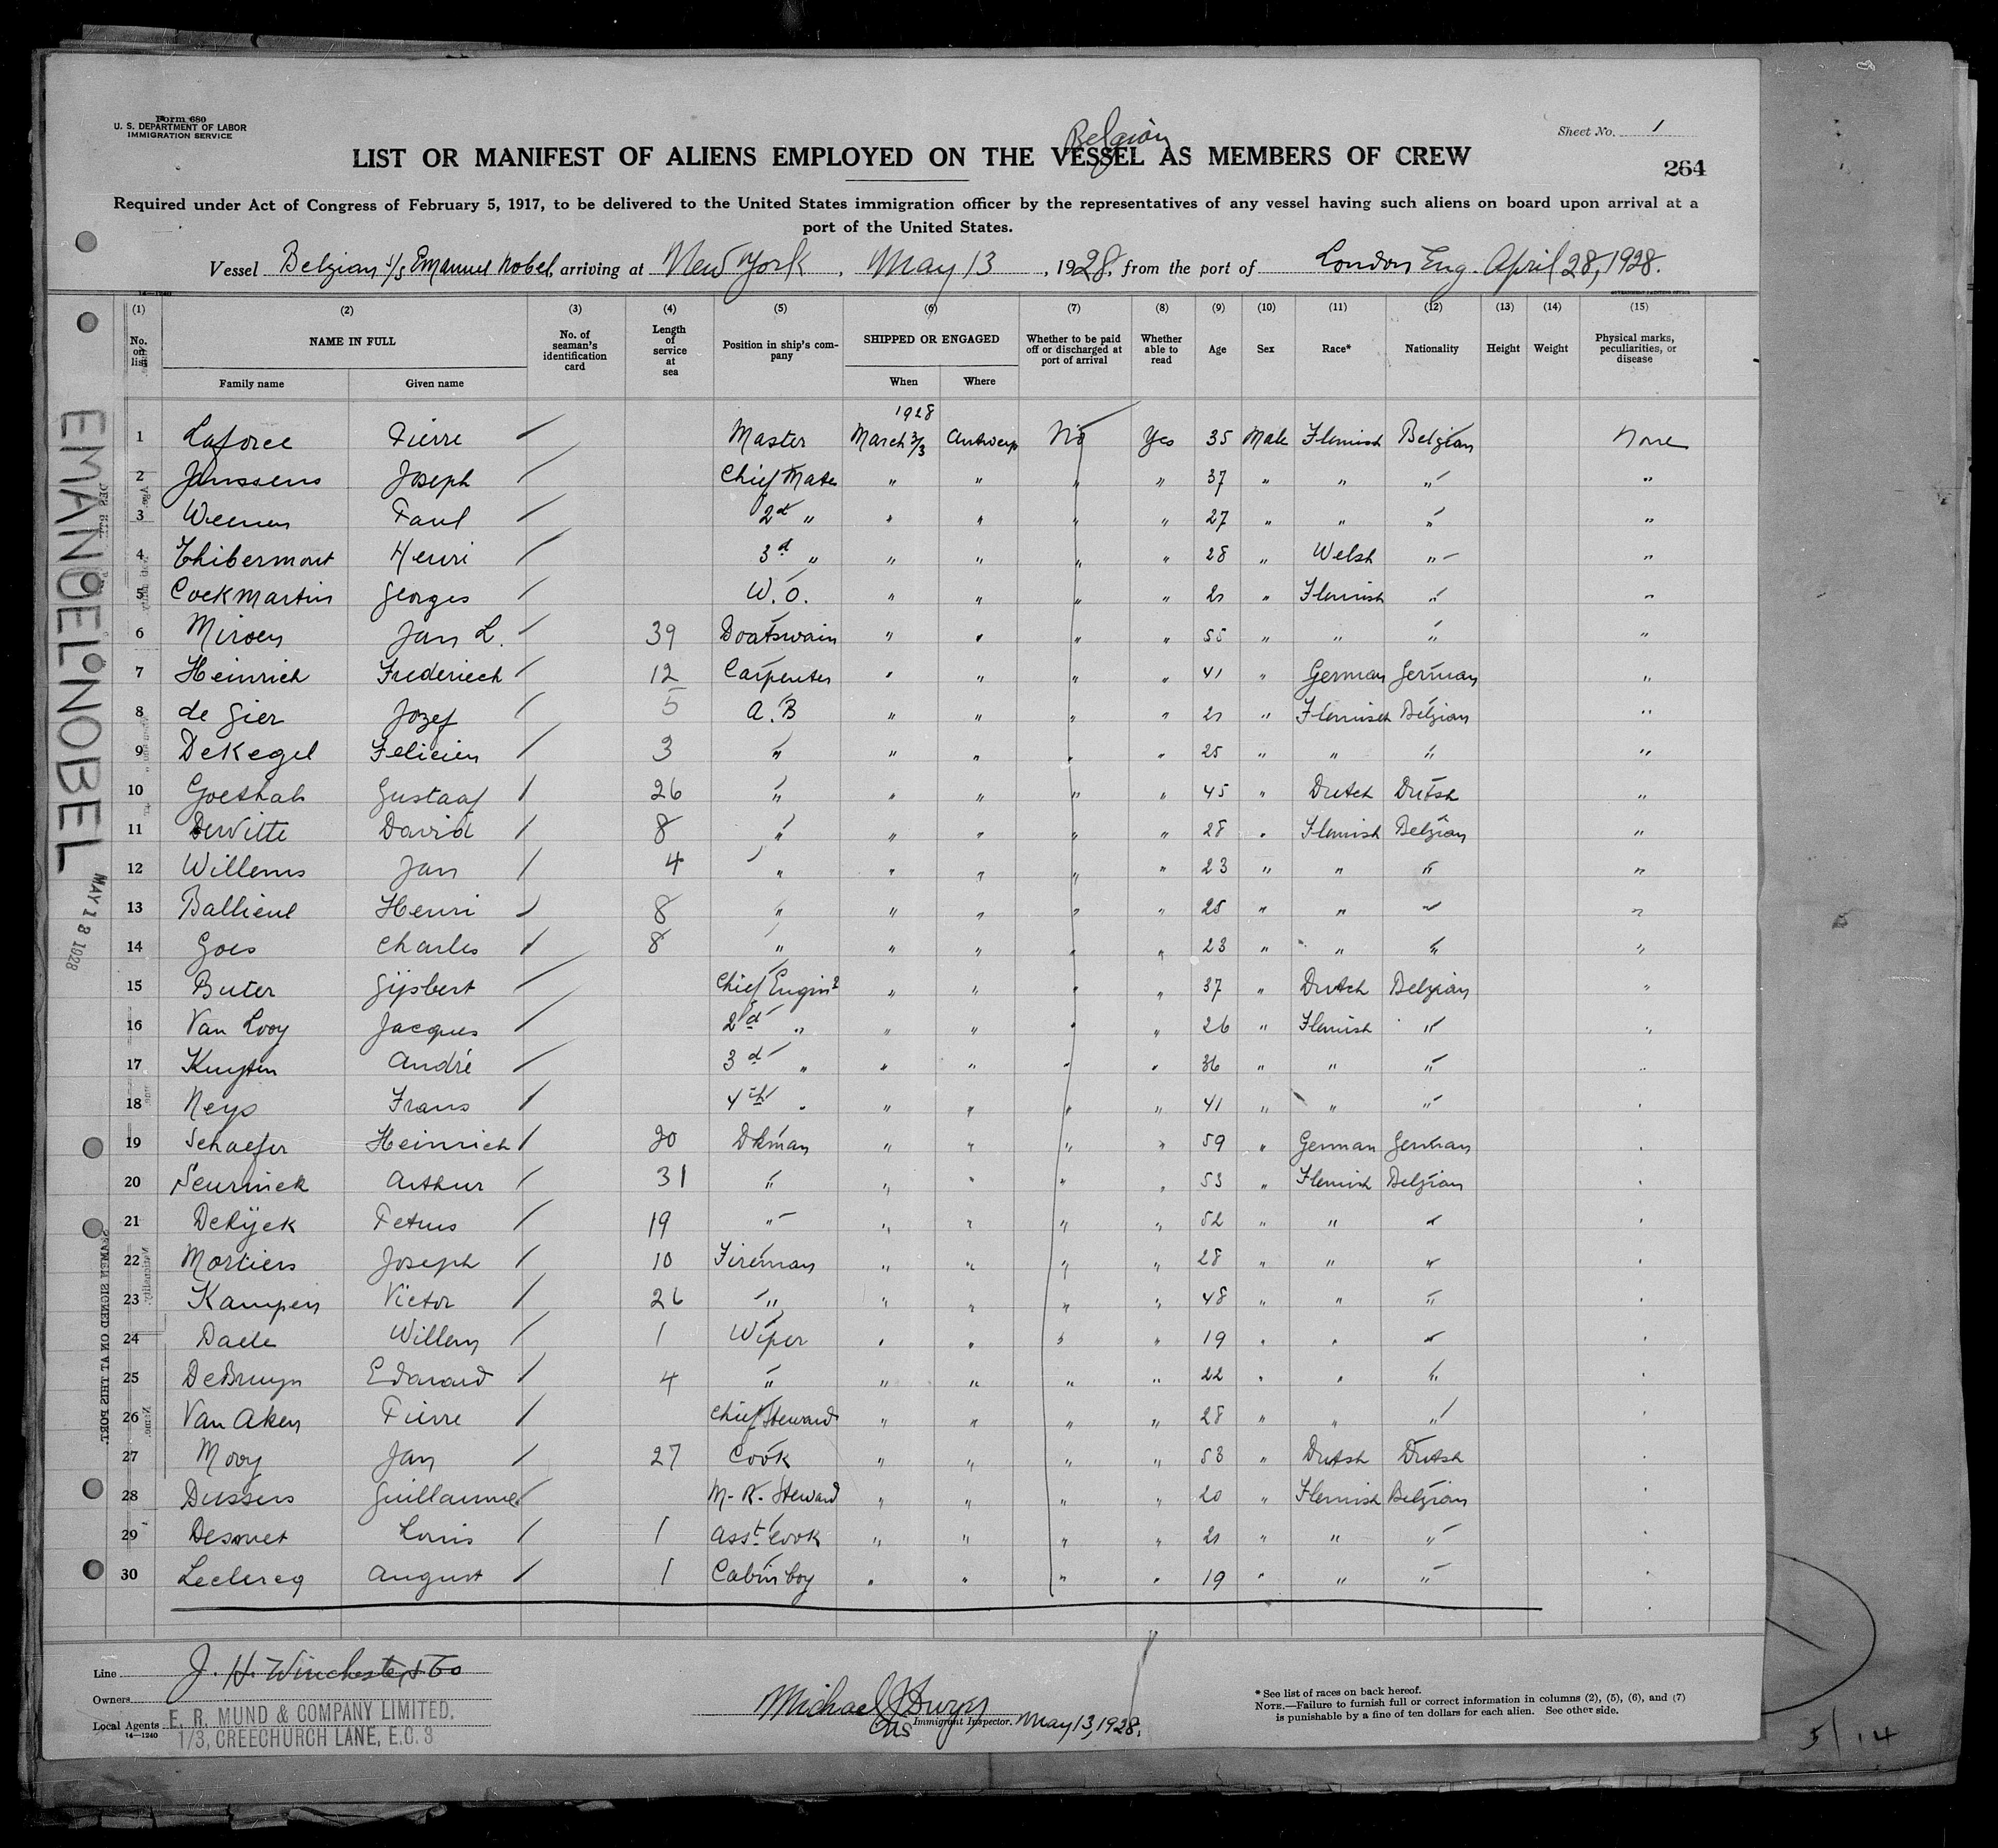 Form 680
U. S. DEPARTMENT OF LABOR
IMMIGRATION SERVICE
Sheet No. 1
Belgian
LIST OR MANIFEST OF ALIENS EMPLOYED ON THE VESSEL AS MEMBERS OF CREW
264
Required under Act of Congress of February 5, 1917, to be delivered to the United States immigration officer by the representatives of any vessel having such aliens on board upon arrival at a
port of the United States.
Vessel Belgian s/s Emanuel Nobel, arriving at New York, May 13, 1928, from the port of London Eng. April 28, 1928.
(1) (2) (3) (4) (5) (6) (7) (8) (9) (10) (11) (12) (13) (14) (15)
No. on list NAME IN FULL Family name Given name No. of seaman's identification card Length of service at sea Position in ship's company SHIPPED OR ENGAGED When Where Whether to be paid off or discharged at port of arrival Whether able to read Age Sex Race* Nationality Height Weight Physical marks, peculiarities, or disease
1928
1 Laforce Pierre Master March Antwerp No Yes 35 Male Flemish Belgian None
2 Janssens Joseph Chief Mate " " " " 37 " " " "
3 Paul 2d " " " " " 27 " " " "
4 Thibermont Henri 3d " " " " " 28 " Welsh " "
5 Cockmartin Georges W.O. " " " " 21 " Flemish " "
6 Miroen Jan L. 39 Boatswain " " " " 55 " " " "
7 Heinrich Frederiech 12 Carpenter " " " " 41 " German German "
8 de Gier Jozef 5 A.B " " " " 21 " Flemisch Belgian "
9 DeKegel Felicien 3 " " " " " 25 " " " "
10 Goethals Gustaaf 26 " " " " " 45 " Dutch Dutsh "
11 DeWitte David 8 " " " " " 28 " Flemish Belgian "
12 Willems Jan 4 " " " " " 23 " " " "
13 Ballieul Henri 8 " " " " " 25 " " " "
14 Goes Charles 8 " " " " " 23 " " " "
15 Buter Gijsbert Chief Enginr " " " " 37 " Dutch Belgian "
16 Van Looy Jacques 2d " " " " " 26 " Flemish " "
17 Kuyten André 3d " " " " " 36 " " " "
18 Neys Frans 4th " " " " " 41 " " " "
19 Schaefer Heinrich 30 Dkman " " " " 59 " German German "
20 Seurinck Arthur 31 " " " " " 53 " Flemish Belgian "
21 DeRijck Petrus 19 " " " " " 52 " " " "
22 Mortiers Joseph 10 Fireman " " " " 28 " " " "
23 Kampen Victor 26 " " " " " 48 " " " "
24 Daele Willem 1 Wiper " " " " 19 " " " "
25 DeBruyn Edward 4 " " " " " 22 " " " "
26 Van Aken Pierre Chief Steward " " " " 28 " " " "
27 Mooy Jan 27 Cook " " " " 53 " Dutsh Dutsh "
28 Dussers Guillaume M-R. Steward " " " " 20 " Flemish Belgian "
29 Desmet Louis 1 Asst. Cook " " " " 21 " " " "
30 Leclercq August 1 Cabinboy " " " " 19 " " " "
EMANUEL NOBEL
MAY 13 1928
SEAMEN SIGNED ON AT THIS PORT.
Line J. H. Winchester & Co
Owners
Local Agents E. R. MUND & COMPANY LIMITED,
1/3, CREECHURCH LANE, E.C. 3
14—1240
Michael J Dwyer
Immigrant Inspector. May 13, 1928.
* See list of races on back hereof.
NOTE.—Failure to furnish full or correct information in columns (2), (5), (6), and (7)
is punishable by a fine of ten dollars for each alien. See other side.
5/14